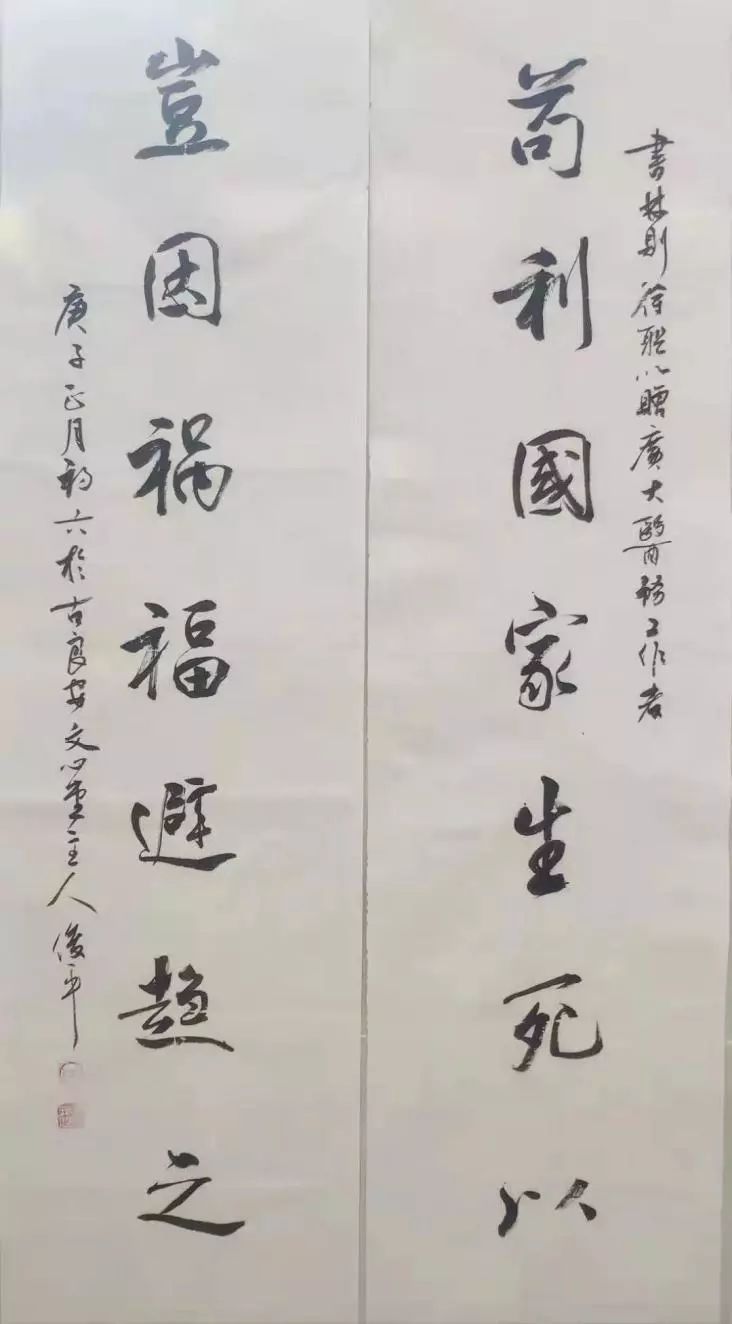 書林則徐聯以贈廣大醫務工作者
苟利國家生死以
豈因祸福避趨之
庚子正月初六於古良安文心堂主人俊平